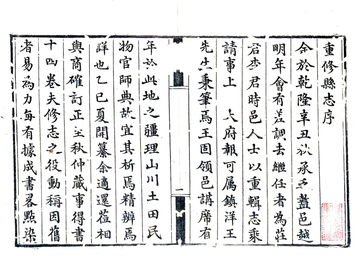 重修縣志序
余於乾隆辛丑欲承乏盩邑越
明年會有差調去繼任者為莊
君李君時邑人士以重輯志乘
請事上大府報可屬鎮洋王
先生秉筆焉王固領邑講席有
年於此地之疆理山川土田民
物官師典故宜其析焉精辨焉
詳也乙巳夏開纂余適還莅相
與商確訂正至秋仲蕆事得書
十四卷夫修志之役動稱因舊
者易為力每有據成書畧點染